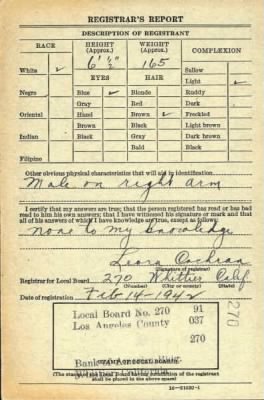 REGISTRAR'S REPORT
DESCRIPTION OF REGISTRANT
RACE
HEIGHT
(Approx.)
WEIGHT
(Approx.)
COMPLEXION
6' ½"
165
White ✓
Sallow
EYES
HAIR
Light ✓
Negro
Blue ✓
Blonde
Ruddy
Gray
Red
Dark
Oriental
Hazel
Brown ✓
Freckled
Brown
Black
Light brown
Indian
Black
Gray
Dark brown
Bald
Black
Filipino
Other obvious physical characteristics that will aid in identification
Mole on right arm
I certify that my answers are true; that the person registered has read or has had
read to him his own answers; that I have witnessed his signature or mark and that
all of his answers of which I have knowledge are true, except as follows:
none to my knowledge
Leora Cochran
(Signature of registrar)
Registrar for Local Board 270 Whittier Calif
(Number) (City or county) (State)
Date of registration Feb 14-1942
Local Board No. 270 91
Los Angeles County 037
270
270
Bank of America
(The stamp of the Local Board having jurisdiction of the registrant
shall be placed in the above space)